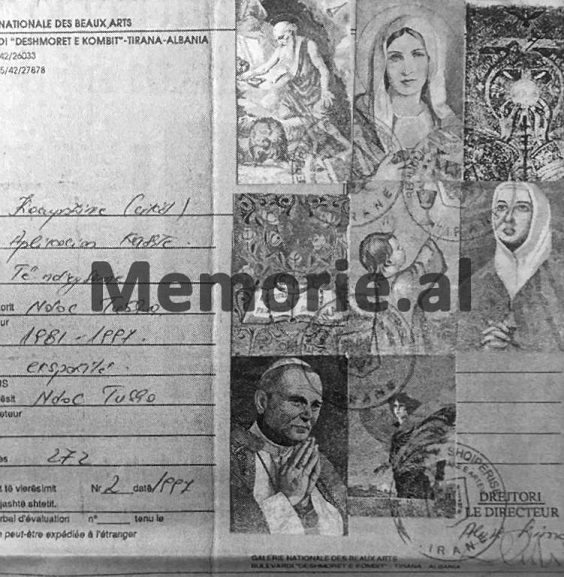 NATIONALE DES BEAUX ARTS
DI "DESHMORET E KOMBIT"-TIRANA-ALBANIA
42/26033
5/42/27878
(cikël)
Aplikacion
Të ndryshme
orit Ndoc
ur
1981-1997.
US
ësit Ndoc
eteur
es 272
t të vlerësimit Nr 2 datë/1997
jashtë shtetit.
rbal d'évaluation n° tenu le
e peut-être expédiée à l'étranger
Memorie.al
TIRANE
TIRANE
SHQIPERIS
DREJTORI
LE DIRECTEUR
TIRANE
GALERIE NATIONALE DES BEAUX ARTS
BULEVARDI "DESHMORET E KOMBIT" - TIRANA - ALBANIA